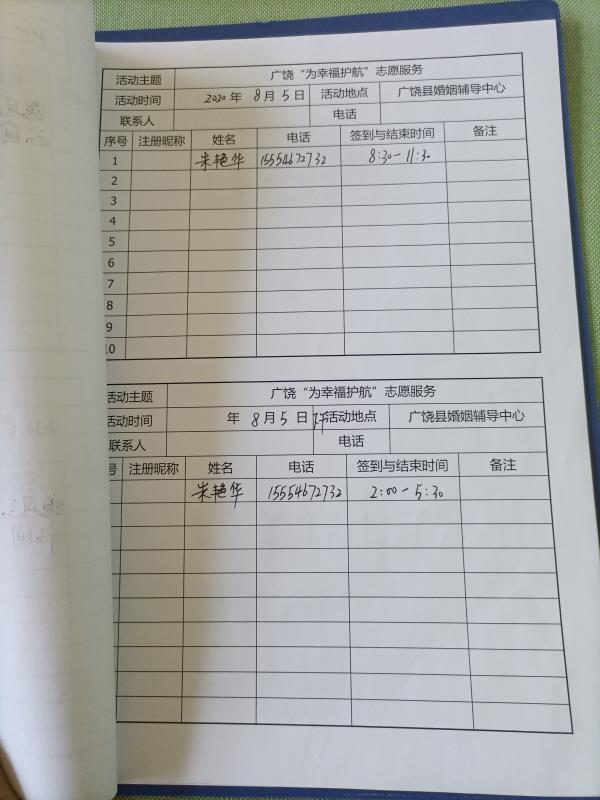 活动主题 广饶“为幸福护航”志愿服务
活动时间 2020年 8月5日 活动地点 广饶县婚姻辅导中心
联系人 电话
序号 注册昵称 姓名 电话 签到与结束时间 备注
1 朱艳华 15554672732 8:30-11:30
2
3
4
5
6
7
8
9
10
活动主题 广饶“为幸福护航”志愿服务
活动时间 年 8月5日 下午 活动地点 广饶县婚姻辅导中心
联系人 电话
号 注册昵称 姓名 电话 签到与结束时间 备注
朱艳华 15554672732 2:00-5:30